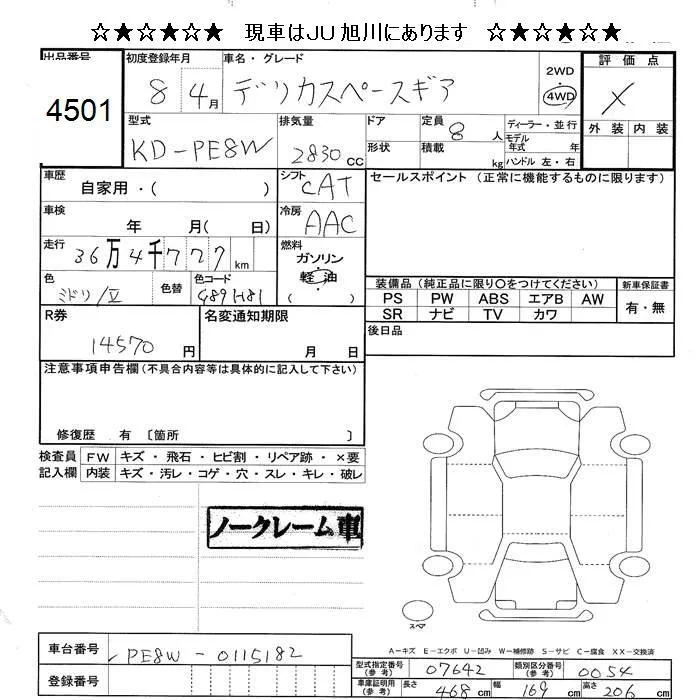 ☆★☆★☆★☆ 現車はJU旭川にあります ☆★☆★☆★☆
出品番号 初度登録年月 車名・グレード 2WD 評価点
4501 8 4月 デリカスペースギア 4WD X
型式 排気量 ドア 定員 8 人 ディーラー・並行 外装 内装
KD-PE8W 2830 CC 形状 積載 kg モデル年式 年 ハンドル 左・右
車歴 シフト セールスポイント (正常に機能するものに限ります)
自家用・( ) CAT
車検 冷房
年 月( 日) AAC
走行 36万4千727km 燃料 ガソリン
色 色替 色コード 軽油
ミドリ/II G89 H81 ( )
装備品(純正品に限り〇をつけてください) 新車保証書
PS PW ABS エアB AW 有・無
SR ナビ TV カワ
R券 名変通知期限 後日品
14570 円 月 日
注意事項申告欄(不具合内容等は具体的に記入して下さい)
修復歴 有 〔箇所 〕
検査員 FW キズ・飛石・ヒビ割・リペア跡・×要
記入欄 内装 キズ・汚レ・コゲ・穴・スレ・キレ・破レ
ノークレーム車
スペア
A-キズ E-エクボ U-凹み W-補修跡 S-サビ C-腐食 XX-交換済
車台番号 PE8W-0115182
登録番号
型式指定番号(参考) 07642 類別区分番号(参考) 0054
車庫証明用(参考) 長さ 468 cm 幅 169 cm 高さ 206 cm